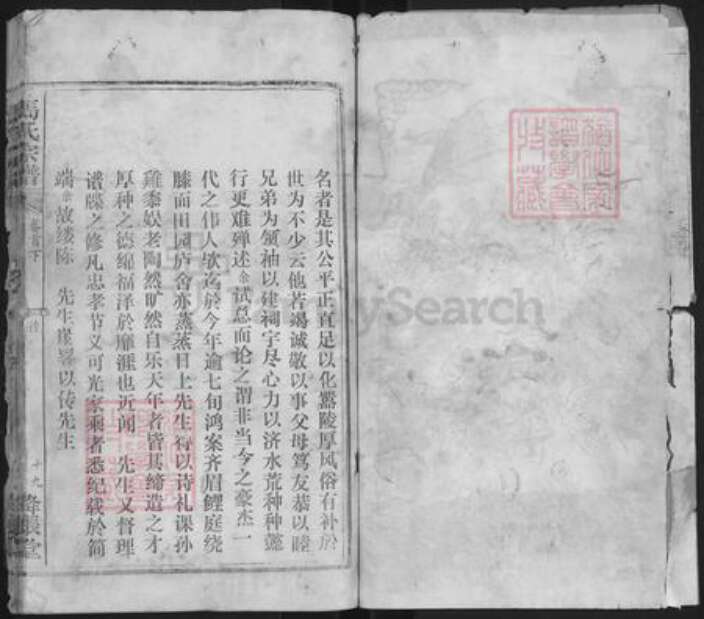 名者是其公平正直足以化嚣陵厚风俗有补於
世为不少云他若竭诚敬以事父母笃友恭以睦
兄弟为领袖以建祠宇尽心力以济水荒种种懿
行更难殚述余试总而论之谓非当今之豪杰一
代之伟人欤迄於今年逾七旬鸿案齐眉鲤庭绕
膝而田园庐舍亦蒸蒸日上先生得以诗礼课孙
鸡黍娱老陶然旷然自乐天年者皆其缔造之才
厚种之德绵福泽於靡涯也近闻 先生又督理
谱牒之修凡忠孝节义可光家乘者悉纪载於简
端余故缕陈 先生崖畧以传先生
馬氏宗谱
卷首下
十九
絳帳堂
MySearch